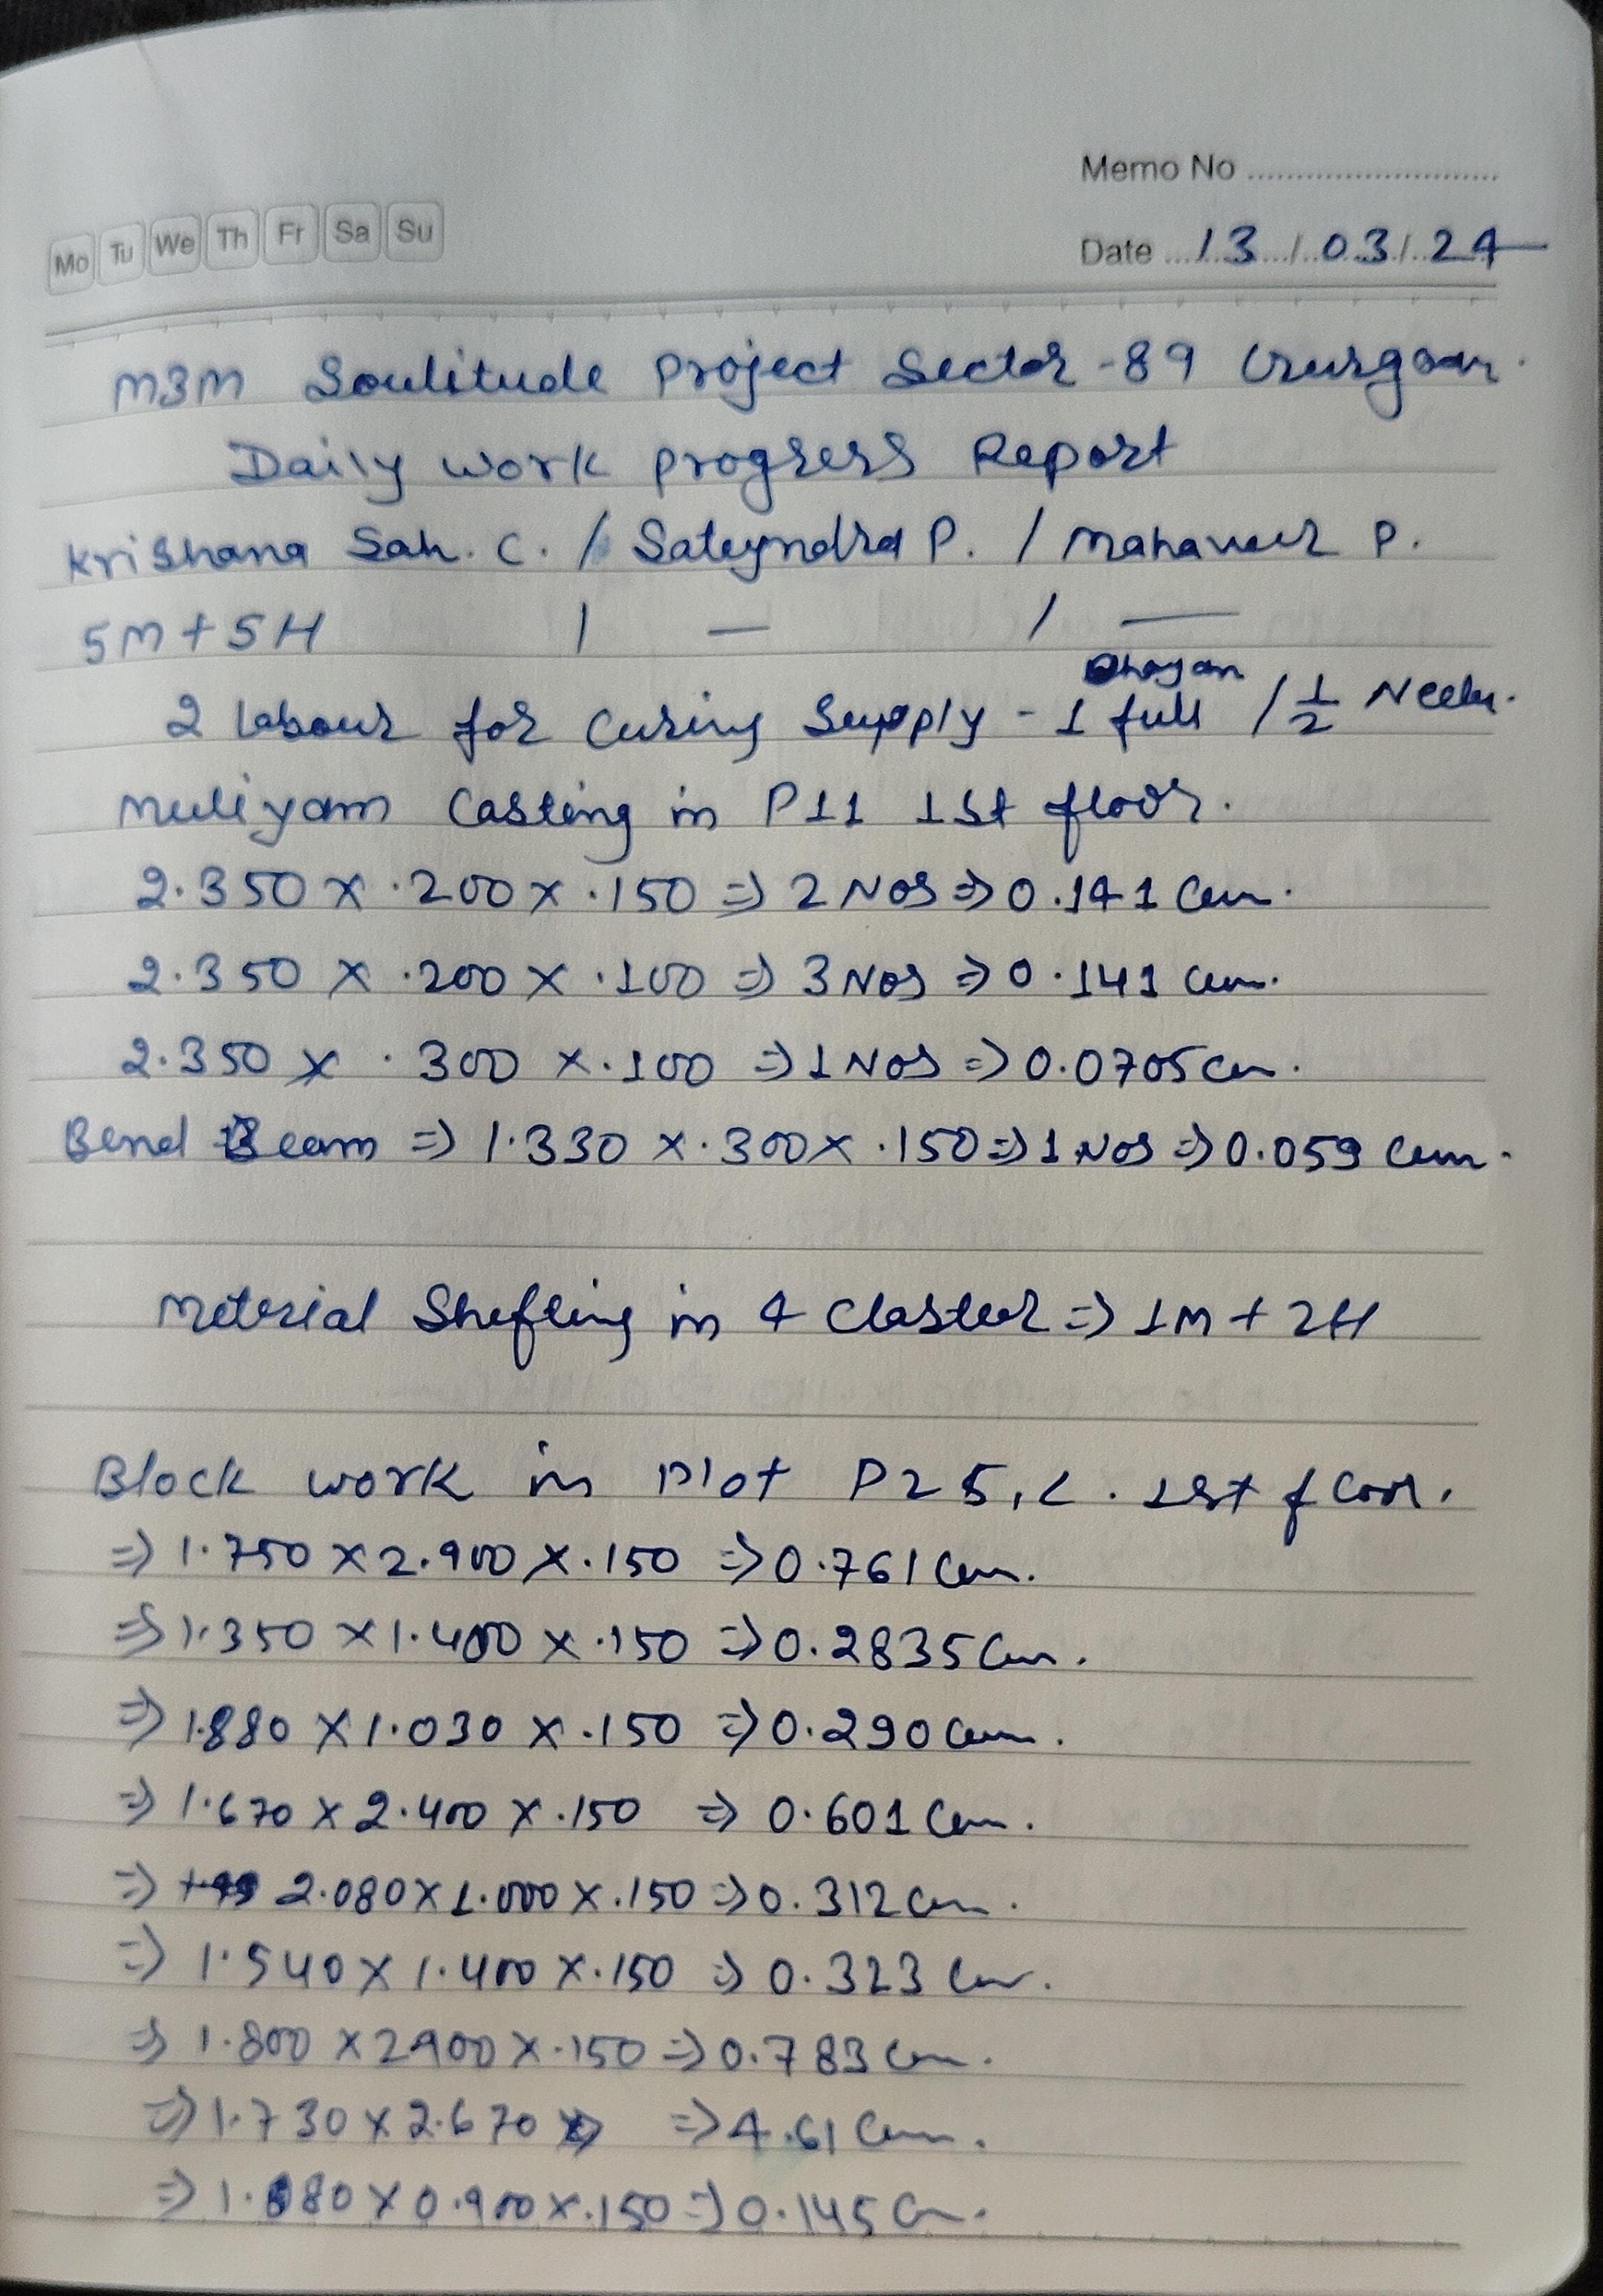 Memo No
Mo Tu We Th Fr Sa Su
Date 13/03/24
M3M Soulitude Project Sector-89 Gurgaon.
Daily work progress Report
Krishana Sah. C. / Sateyndra P. / Mahaveer P.
5M+5H / — / —
Dhayan
2 labour for Curing Supply - 1 full / 1/2 Neelu.
muliyam Casting in P11 1st floor.
2.350 x .200 x .150 => 2 Nos => 0.141 Cum.
2.350 x .200 x .100 => 3 Nos => 0.141 Cum.
2.350 x .300 x .100 => 1 Nos => 0.0705 Cum.
Bend Beam => 1.330 x .300 x .150 => 1 Nos => 0.059 Cum.
Meterial Shefting in 4 Claster => 1M + 2H
Block work in Plot P25, L. 1st floor.
=> 1.750 x 2.900 x .150 => 0.761 Cum.
=> 1.350 x 1.400 x .150 => 0.2835 Cum.
=> 1.880 x 1.030 x .150 => 0.290 Cum.
=> 1.670 x 2.400 x .150 => 0.601 Cum.
=> 2.080 x 1.000 x .150 => 0.312 Cum.
=> 1.540 x 1.400 x .150 => 0.323 Cum.
=> 1.800 x 2900 x .150 => 0.783 Cum.
=> 1.730 x 2.670 => 4.61 Cum.
=> 1.080 x 0.900 x .150 => 0.145 Cum.